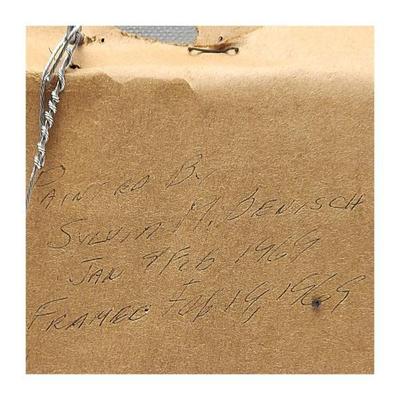 PAINTED B.
SYLVIA M. DENISCH
JAN & FEB 1969
FRAMED FEB 19, 1969